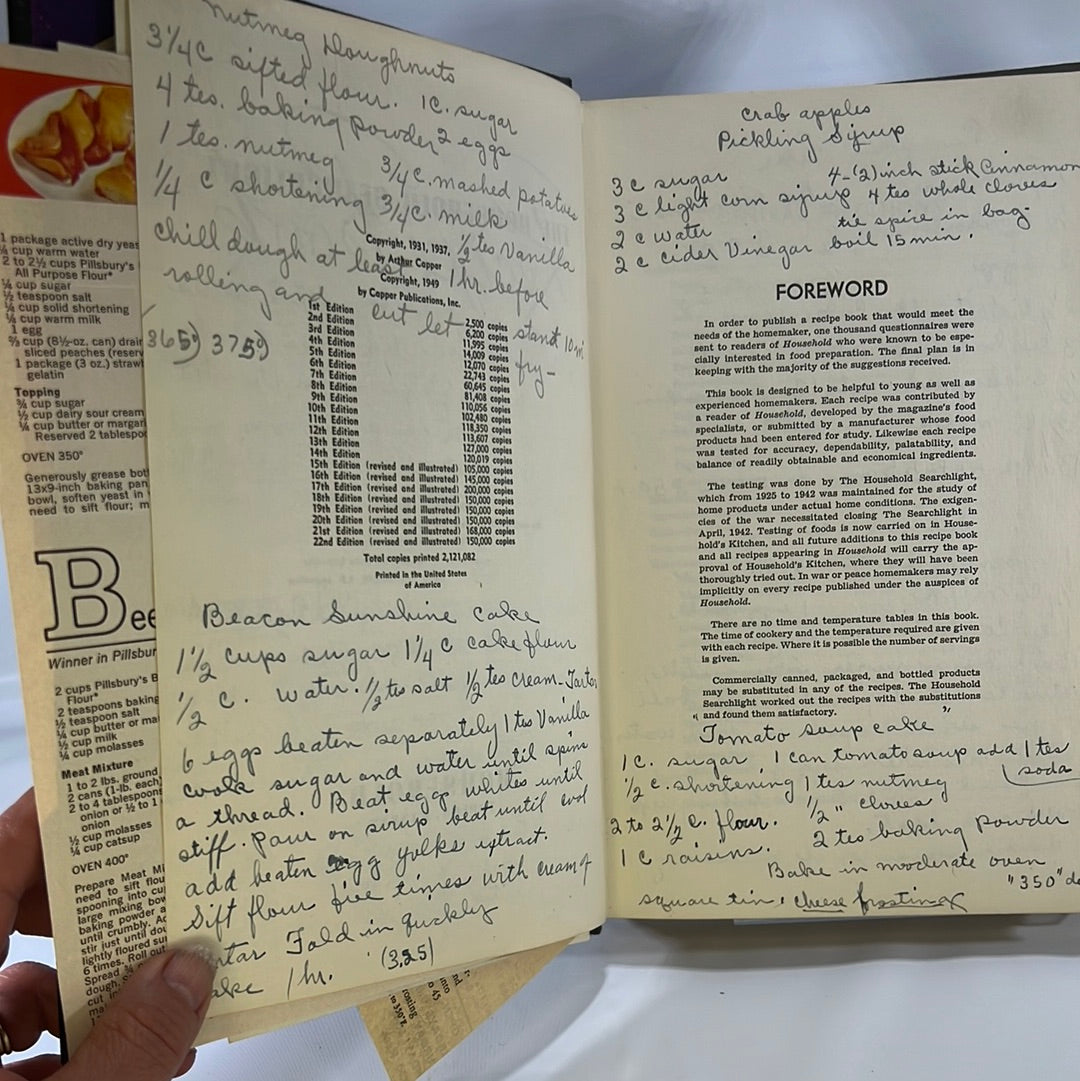 1 package active dry yeas
¼ cup warm water
2 to 2½ cups Pillsbury's
All Purpose Flour*
¼ cup sugar
½ teaspoon salt
¼ cup solid shortening
¼ cup warm milk
1 egg
⅔ cup (8½-oz. can) drain
sliced peaches (reserv
1 package (3 oz.) straw
gelatin
Topping
¾ cup sugar
½ cup dairy sour cream
¼ cup butter or margar
Reserved 2 tablespo
OVEN 350°
Generously grease bot
13x9-inch baking pan
bowl, soften yeast in
need to sift flour; m
Bee
Winner in Pillsbur
2 cups Pillsbury's B
Flour*
2 teaspoons baking
½ teaspoon salt
¼ cup butter or ma
½ cup milk
¼ cup molasses
Meat Mixture
1 to 2 lbs. ground
2 cans (1-lb. each)
2 to 4 tablespoons
onion or ½ to 1
onion
½ cup molasses
¼ cup catsup
OVEN 400°
Prepare Meat Mi
need to sift flou
spooning into cu
large mixing bow
baking powder a
until crumbly. Ad
stir just until dou
lightly floured su
6 times. Roll out
Spread ¾
cut in
nutmeg Doughnuts
3¼ c sifted flour. 1 c. sugar
4 tes. baking powder 2 eggs
1 tes. nutmeg ¾ c. mashed potatoes
¼ c shortening ¾ c. milk
½ tes Vanilla
chill dough at least 1 hr. before
rolling and cut let stand 10 m
fry-
365°) 375°)
Copyright, 1931, 1937,
by Arthur Capper
Copyright, 1949
by Capper Publications, Inc.
1st Edition 2,500 copies
2nd Edition 6,200 copies
3rd Edition 11,995 copies
4th Edition 14,009 copies
5th Edition 12,070 copies
6th Edition 22,743 copies
7th Edition 60,645 copies
8th Edition 81,408 copies
9th Edition 110,056 copies
10th Edition 102,480 copies
11th Edition 118,350 copies
12th Edition 113,607 copies
13th Edition 127,000 copies
14th Edition 120,019 copies
15th Edition (revised and illustrated) 105,000 copies
16th Edition (revised and illustrated) 145,000 copies
17th Edition (revised and illustrated) 200,000 copies
18th Edition (revised and illustrated) 150,000 copies
19th Edition (revised and illustrated) 150,000 copies
20th Edition (revised and illustrated) 150,000 copies
21st Edition (revised and illustrated) 168,000 copies
22nd Edition (revised and illustrated) 150,000 copies
Total copies printed 2,121,082
Printed in the United States
of America
Beacon Sunshine cake
1½ cups sugar 1¼ c cake flour
½ c. water. ½ tes salt ½ tes cream-Tartar
6 eggs beaten separately 1 tes Vanilla
cook sugar and water until spins
a thread. Beat egg whites until
stiff. pour on sirup beat until cool
add beaten egg yolks extract.
Sift flour five times with cream of
tartar Fold in quickly
ake 1 hr. (325)
crab apples
Pickling Syrup
3 c sugar 4-(2) inch stick Cinnamon
3 c light corn syrup 4 tes whole cloves
2 c water tie spice in bag.
2 c cider Vinegar boil 15 min.
FOREWORD
In order to publish a recipe book that would meet the
needs of the homemaker, one thousand questionnaires were
sent to readers of Household who were known to be espe-
cially interested in food preparation. The final plan is in
keeping with the majority of the suggestions received.
This book is designed to be helpful to young as well as
experienced homemakers. Each recipe was contributed by
a reader of Household, developed by the magazine's food
specialists, or submitted by a manufacturer whose food
products had been entered for study. Likewise each recipe
was tested for accuracy, dependability, palatability, and
balance of readily obtainable and economical ingredients.
The testing was done by The Household Searchlight,
which from 1925 to 1942 was maintained for the study of
home products under actual home conditions. The exigen-
cies of the war necessitated closing The Searchlight in
April, 1942. Testing of foods is now carried on in House-
hold's Kitchen, and all future additions to this recipe book
and all recipes appearing in Household will carry the ap-
proval of Household's Kitchen, where they will have been
thoroughly tried out. In war or peace homemakers may rely
implicitly on every recipe published under the auspices of
Household.
There are no time and temperature tables in this book.
The time of cookery and the temperature required are given
with each recipe. Where it is possible the number of servings
is given.
Commercially canned, packaged, and bottled products
may be substituted in any of the recipes. The Household
Searchlight worked out the recipes with the substitutions
and found them satisfactory.
" Tomato soup cake "
1 c. sugar 1 can tomato soup add 1 tes
soda
½ c. shortening 1 tes nutmeg
½ " cloves
2 to 2½ c. flour. 2 tes baking powder
1 c raisins. Bake in moderate oven
"350" de
square tin, cheese frosting